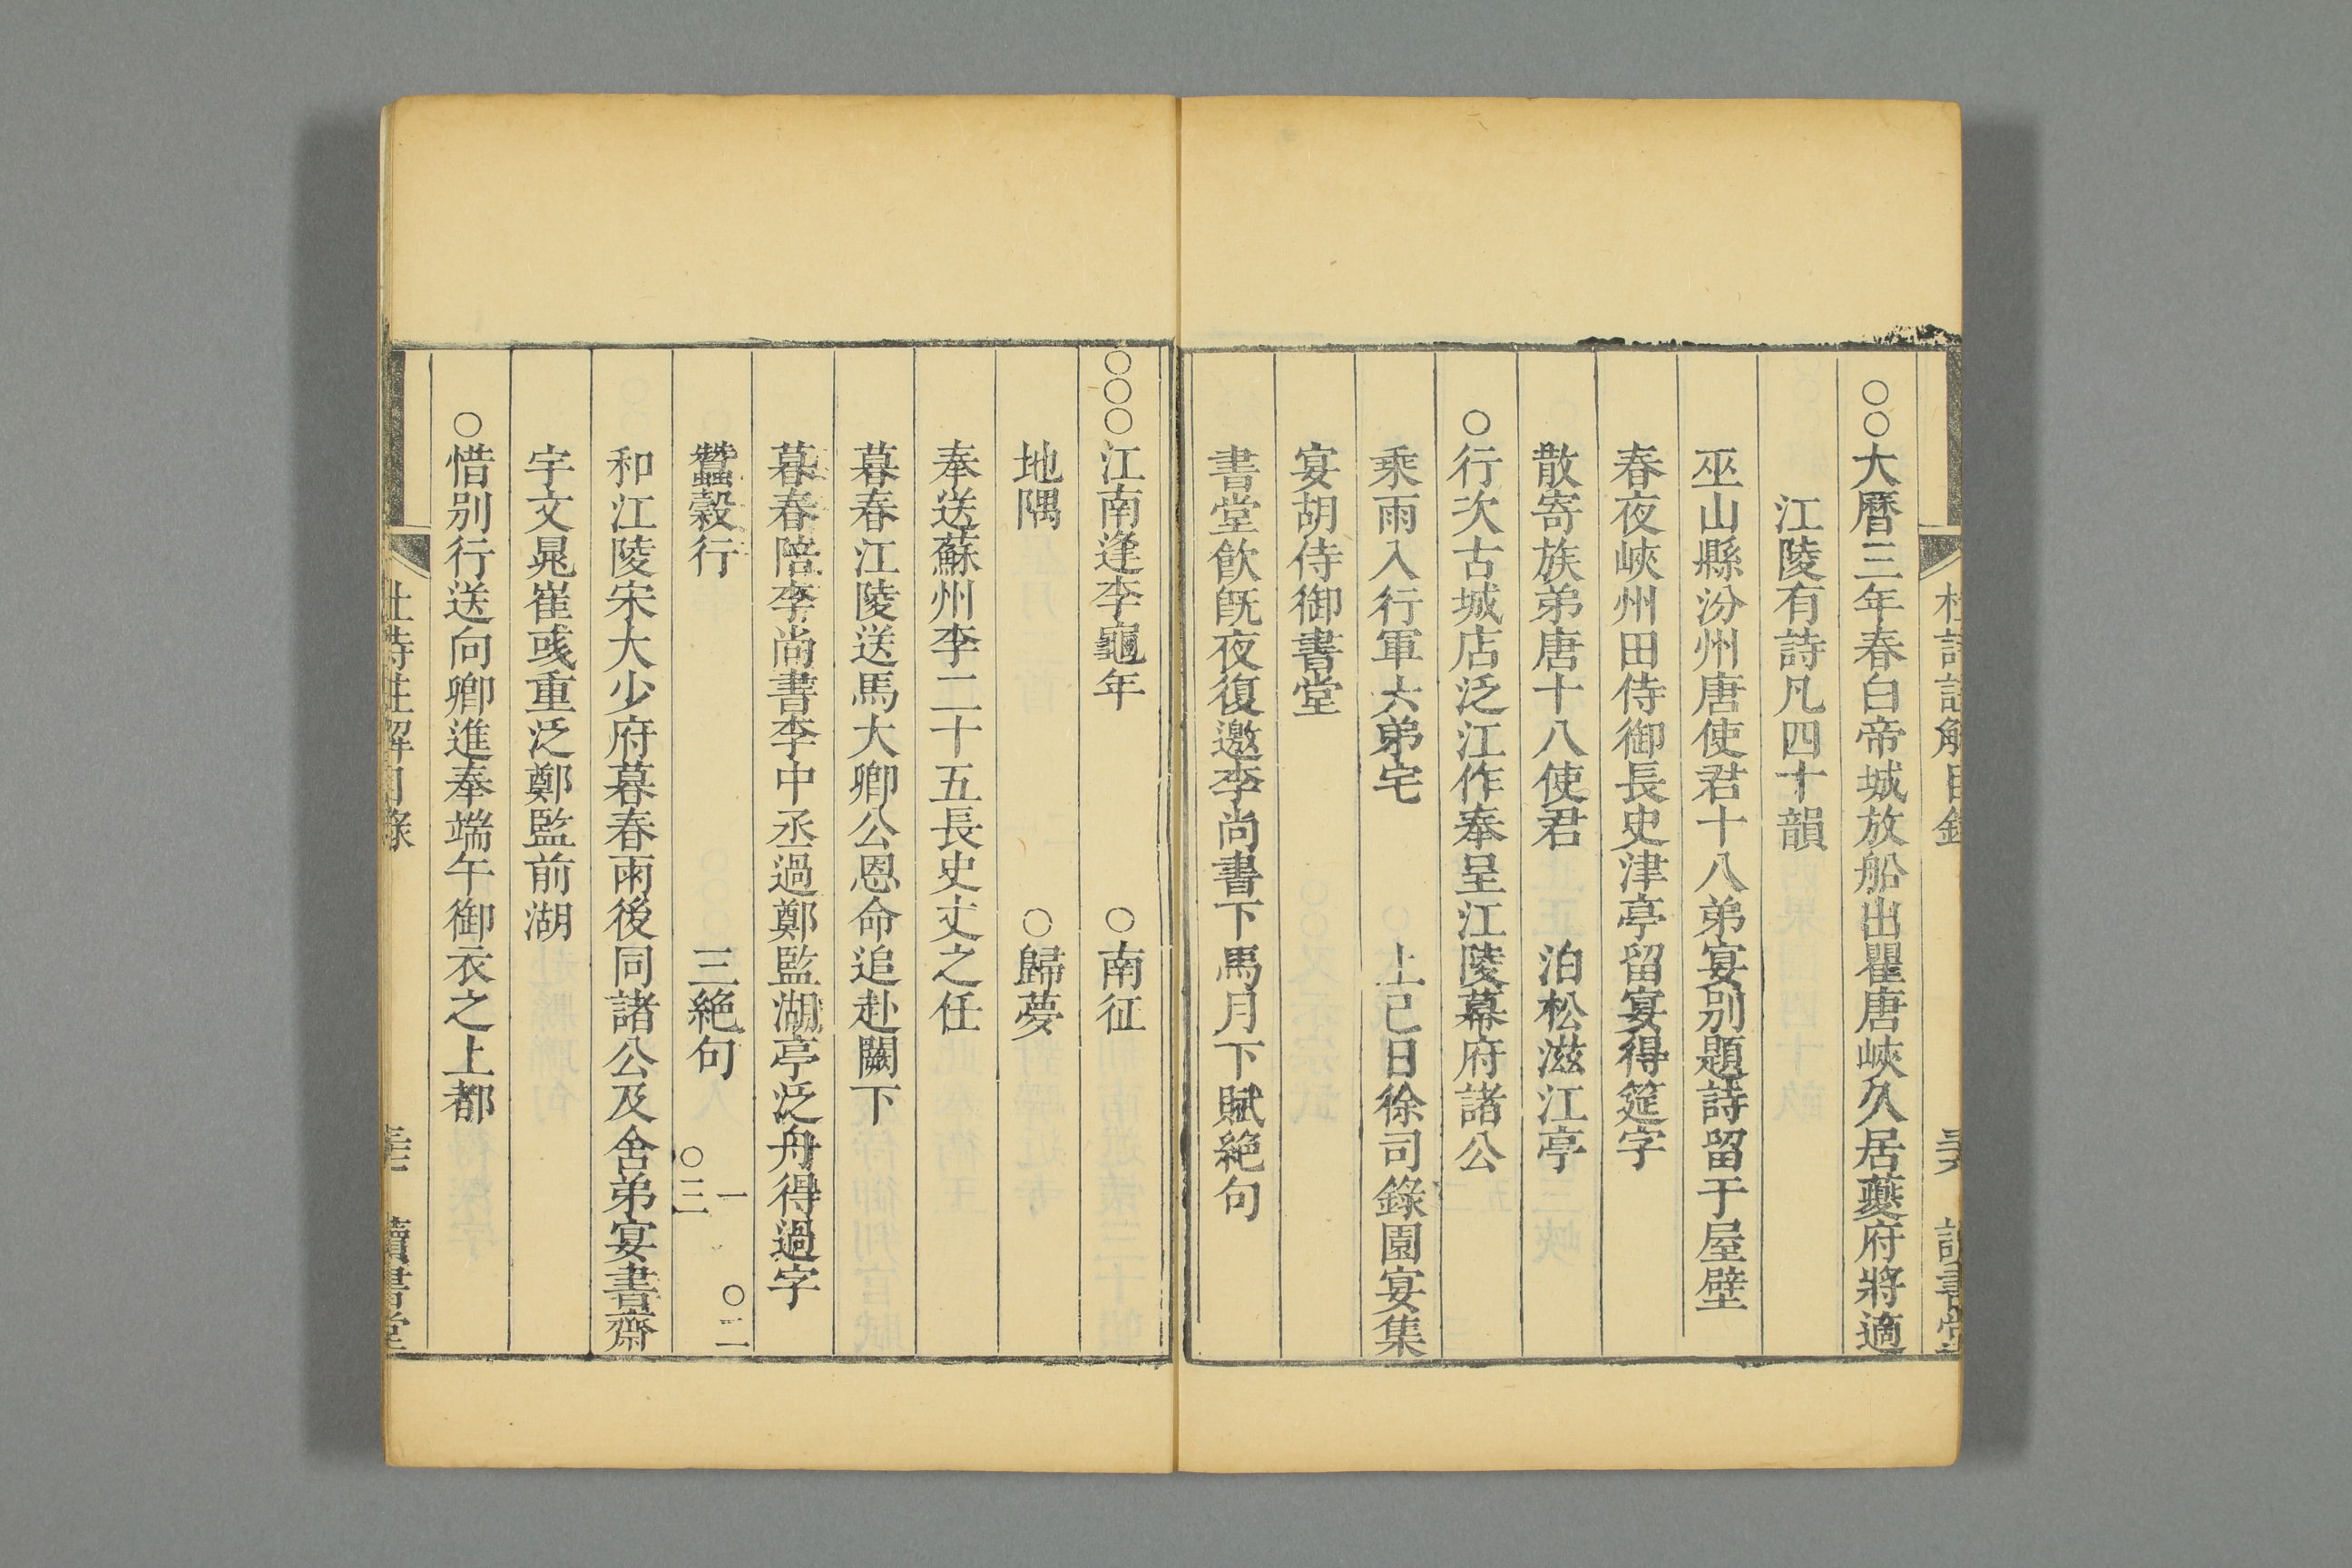 杜詩註解目錄 讀書堂
○○大曆三年春白帝城放船出瞿唐峽久居夔府將適
江陵有詩凡四十韻
巫山縣汾州唐使君十八弟宴別題詩留于屋壁
春夜峽州田侍御長史津亭留宴得筵字
散寄族弟唐十八使君 泊松滋江亭
○行次古城店泛江作奉呈江陵幕府諸公
乘雨入行軍六弟宅 上巳日徐司錄園宴集
宴胡侍御書堂
書堂飲旣夜復邀李尚書下馬月下賦絶句
○○○江南逢李龜年 ○南征
地隅 ○歸夢
奉送蘇州李二十五長史丈之任
暮春江陵送馬大卿公恩命追赴闕下
暮春陪李尚書李中丞過鄭監湖亭泛舟得過字
蠶穀行 三絶句 一 ○二 ○三
和江陵宋大少府暮春雨後同諸公及舍弟宴書齋
宇文晁崔彧重泛鄭監前湖
○惜別行送向卿進奉端午御衣之上都
杜詩註解目錄 讀書堂